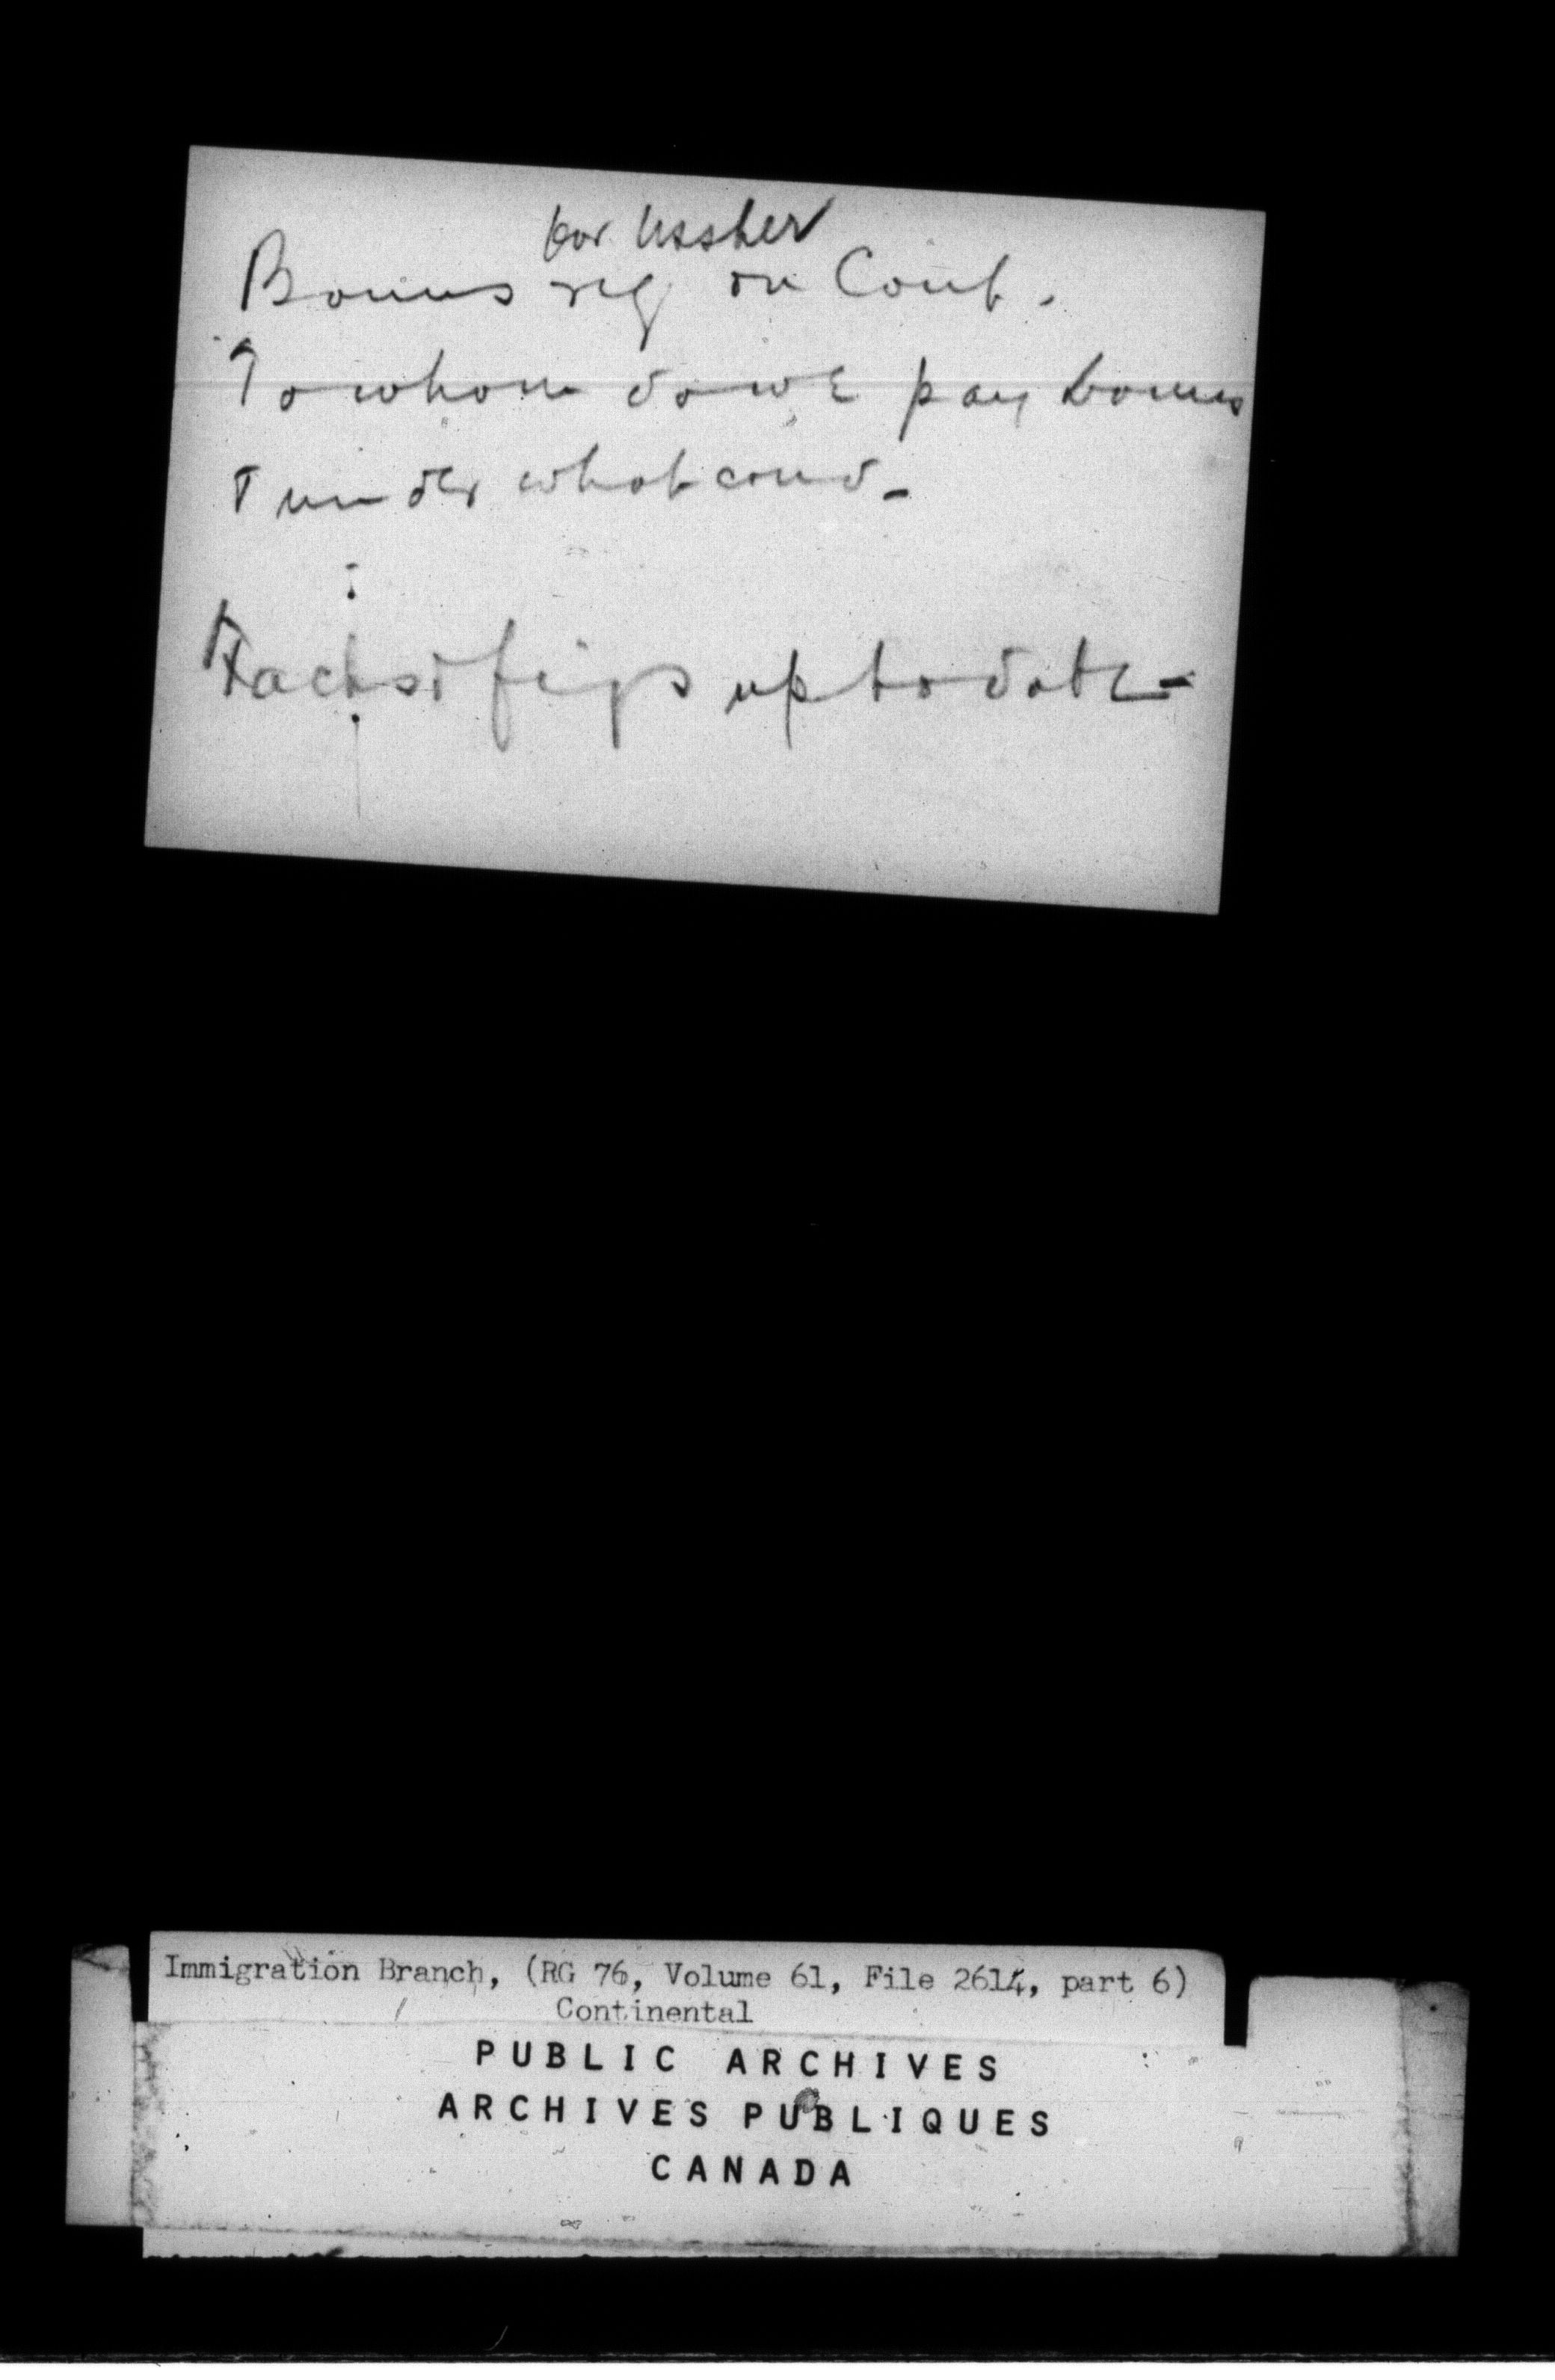 for Ussher
Bonus reg on Cont.
To whom do we pay bonus
& under what cond-
Facts & figs up to date-
Immigration Branch, (RG 76, Volume 61, File 2614, part 6)
Continental
PUBLIC ARCHIVES
ARCHIVES PUBLIQUES
CANADA